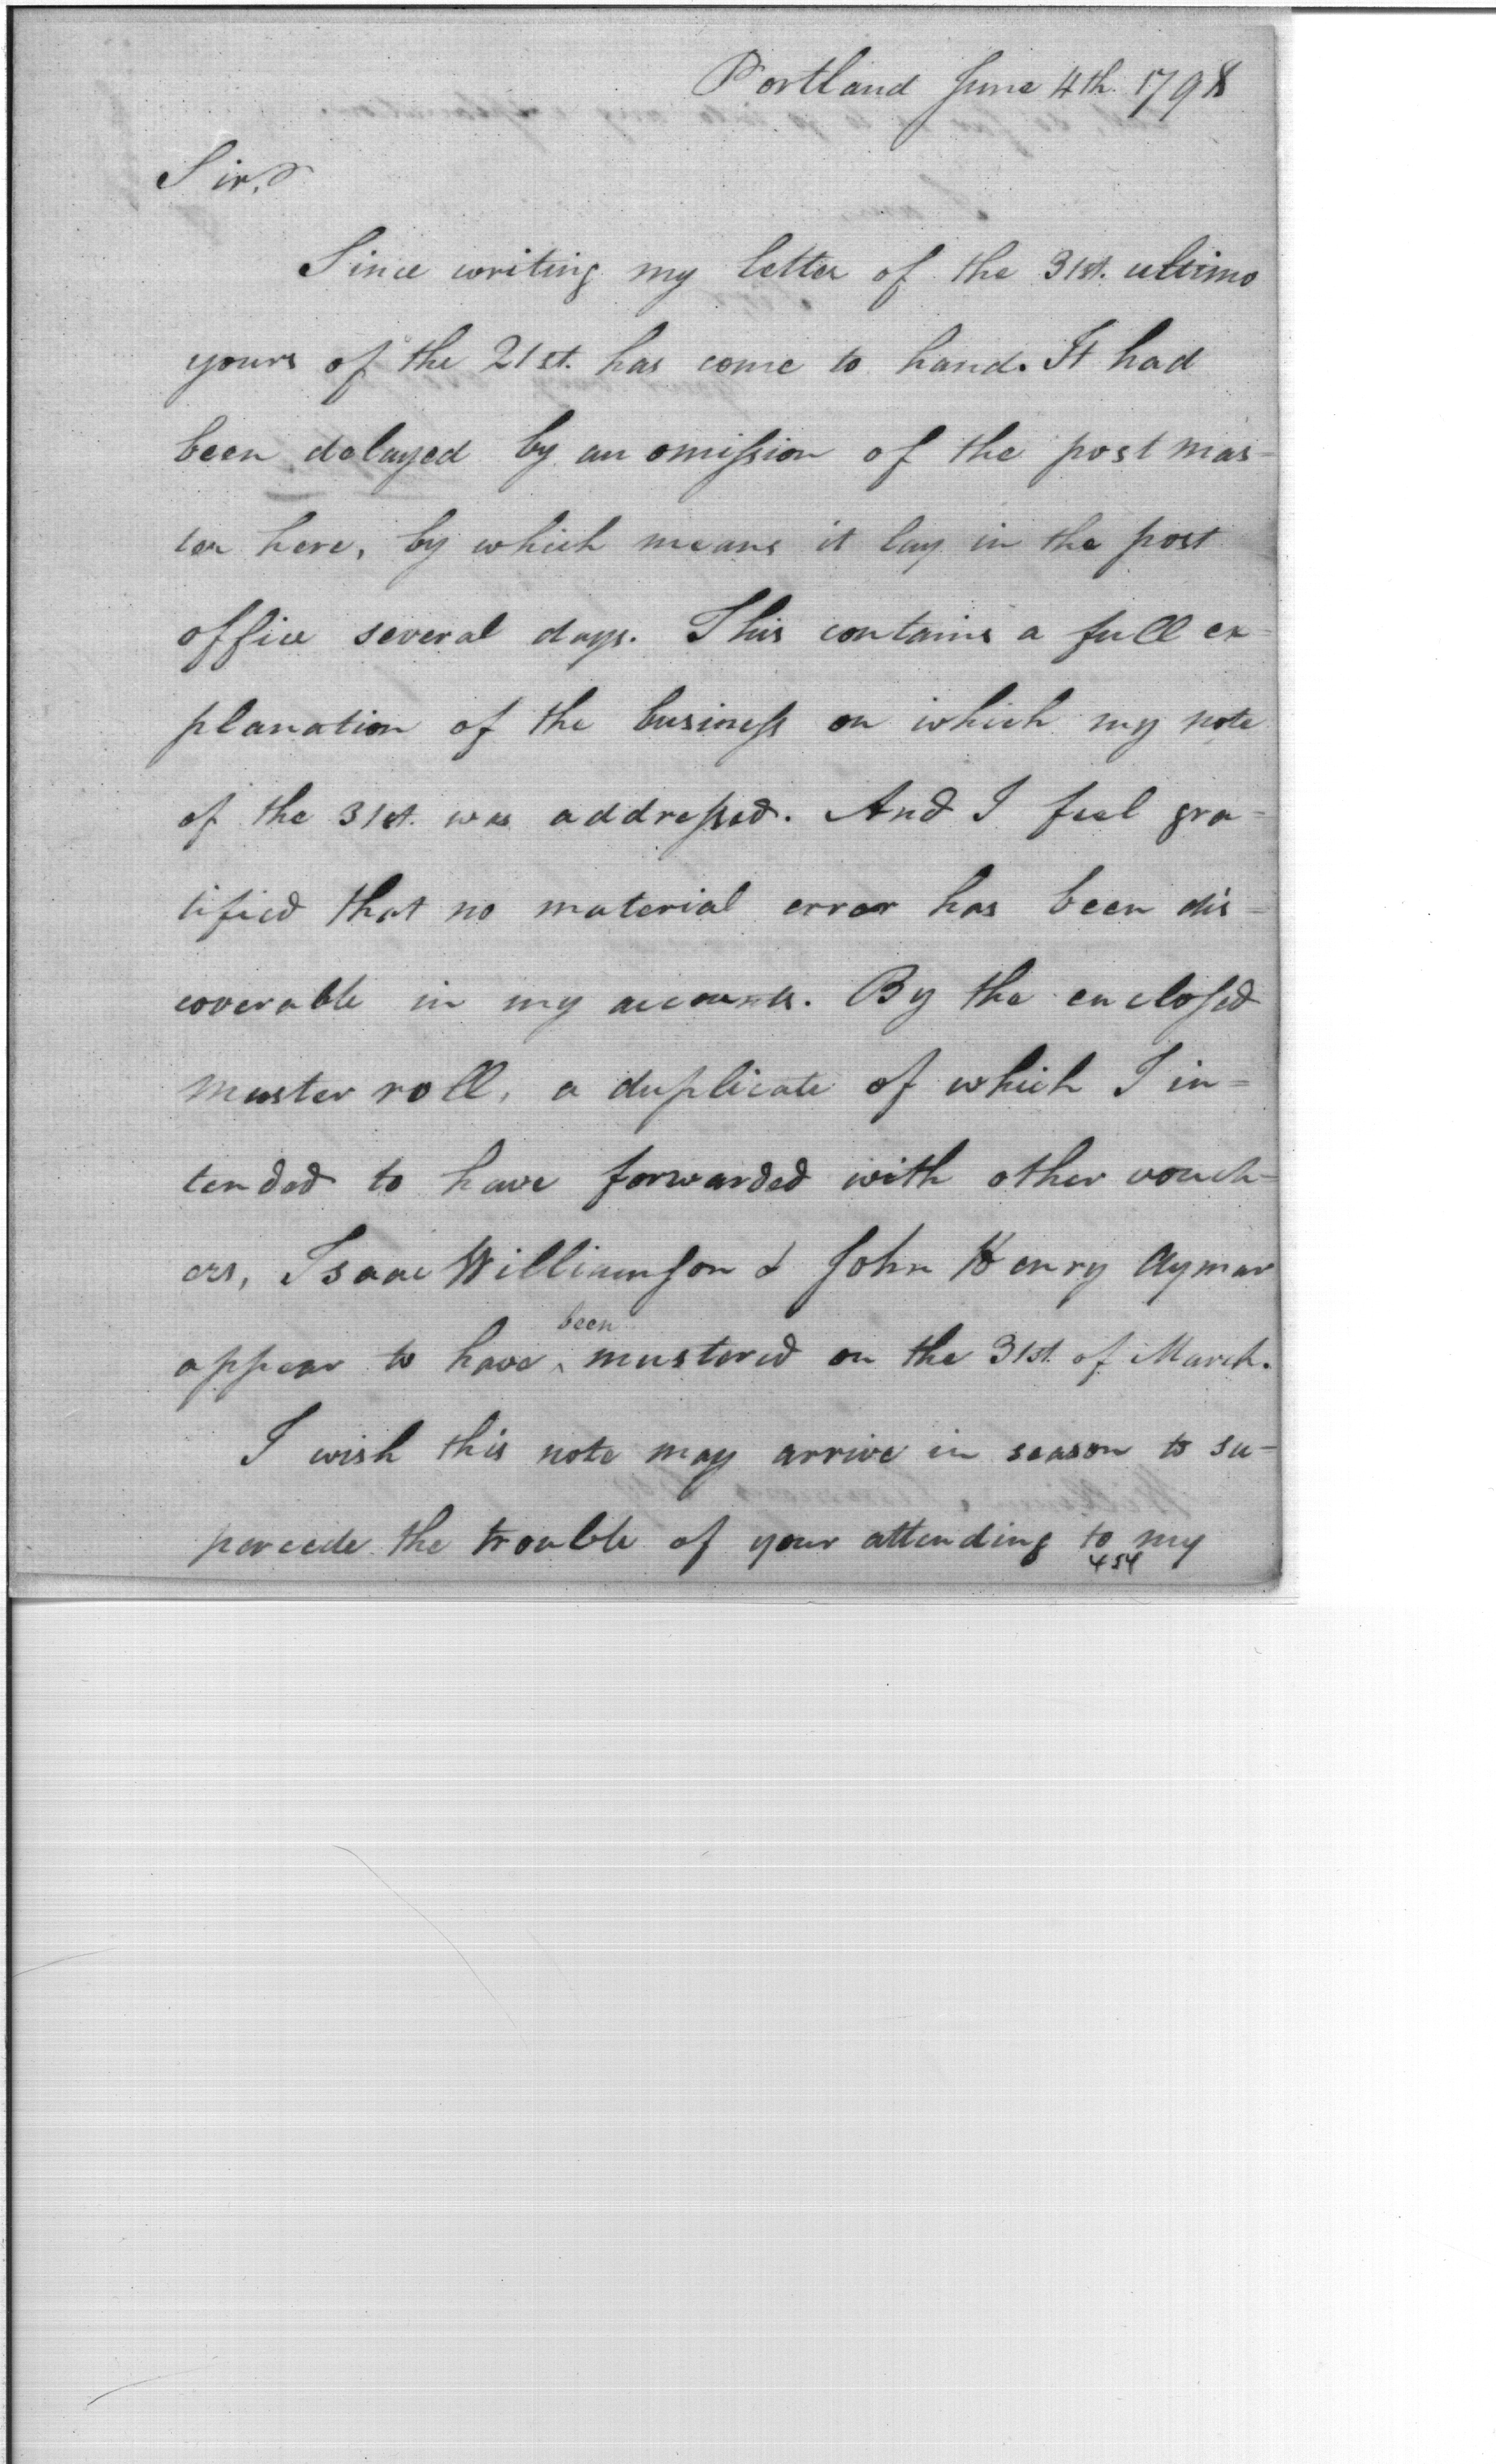 Portland June 4th. 1798
Sir,
Since writing my letter of the 31st. ultimo
yours of the 21st. has come to hand. It had
been delayed by an omission of the post mas-
ter here, by which means it lay in the post
office several days. This contains a full ex=
planation of the business on which my note
of the 31st. was addressed. And I feel gra=
tified that no material error has been dis=
coverable in my accounts. By the enclosed
muster roll, a duplicate of which I in=
tended to have forwarded with other vouch=
ers, Isaac Williamson & John Henry Aymar
been
appear to have ‸ mustered on the 31st. of March.
I wish this note may arrive in season to su=
percede the trouble of your attending to my
454